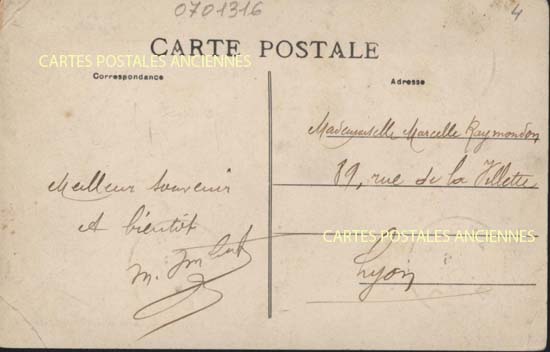 0701316
4
CARTE POSTALE
CARTES POSTALES ANCIENNES
Correspondance
Adresse
Meilleur souvenir
A bientôt
M.
Mademoiselle Marcelle Raymondon
89, rue de la Villette
CARTES POSTALES ANCIENNES
Lyon